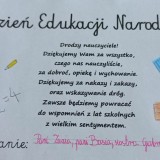 zień Edukacji Narod
Drodzy nauczyciele!
Dziękujemy Wam za wszystko,
czego nas nauczyliście,
za dobroć, opiekę i wychowanie.
Dziękujemy za nakazy i zakazy,
oraz wskazywanie dróg.
Zawsze będziemy powracać
do wspomnień z lat szkolnych
z wielkim sentymentem.
=4
anie: Pani Basia,